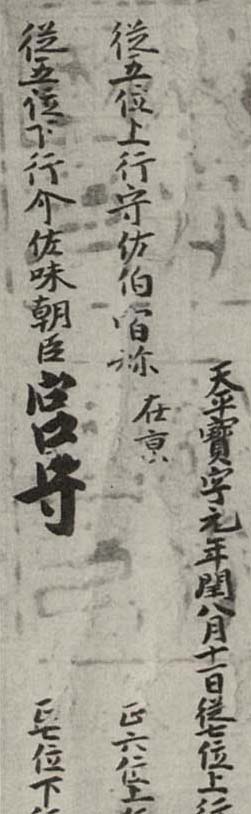 天平寳字元年閏八月十一日従七位上行
従五位上行守佐伯宿祢 在京
正六位上行
従五位下行介佐味朝臣宮守
正七位下行